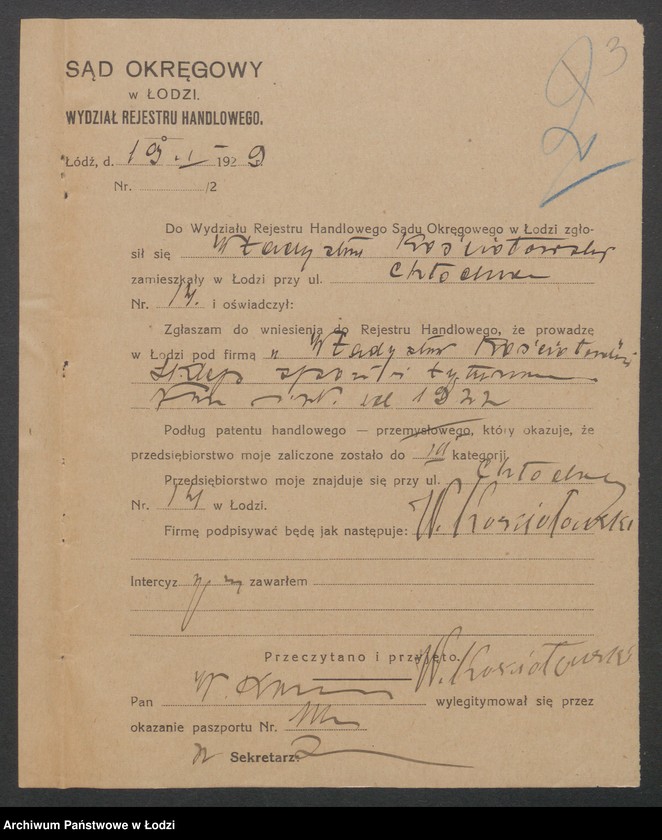 3
2
SĄD OKRĘGOWY
w ŁODZI.
WYDZIAŁ REJESTRU HANDLOWEGO.
Łódź, d. 19 I 1929
Nr. /2
Do Wydziału Rejestru Handlowego Sądu Okręgowego w Łodzi zgło-
sił się Władysław Kościołowski
zamieszkały w Łodzi przy ul. Chłodna
Nr. 14. i oświadczył:
Zgłaszam do wniesienia do Rejestru Handlowego, że prowadzę
w Łodzi pod firmą „Władysław Kościołowski
sklep
od 1922
Podług patentu handlowego — przemysłowego, który okazuje, że
przedsiębiorstwo moje zaliczone zostało do III kategorji.
Przedsiębiorstwo moje znajduje się przy ul. Chłodnej
Nr. 14 w Łodzi.
Firmę podpisywać będę jak następuje: W. Kościołowski
Intercyz nie zawarłem
Przeczytano i przyjęto. W. Kościołowski
Pan W. wylegitymował się przez
okazanie paszportu Nr.
Sekretarz:
Archiwum Państwowe w Łodzi